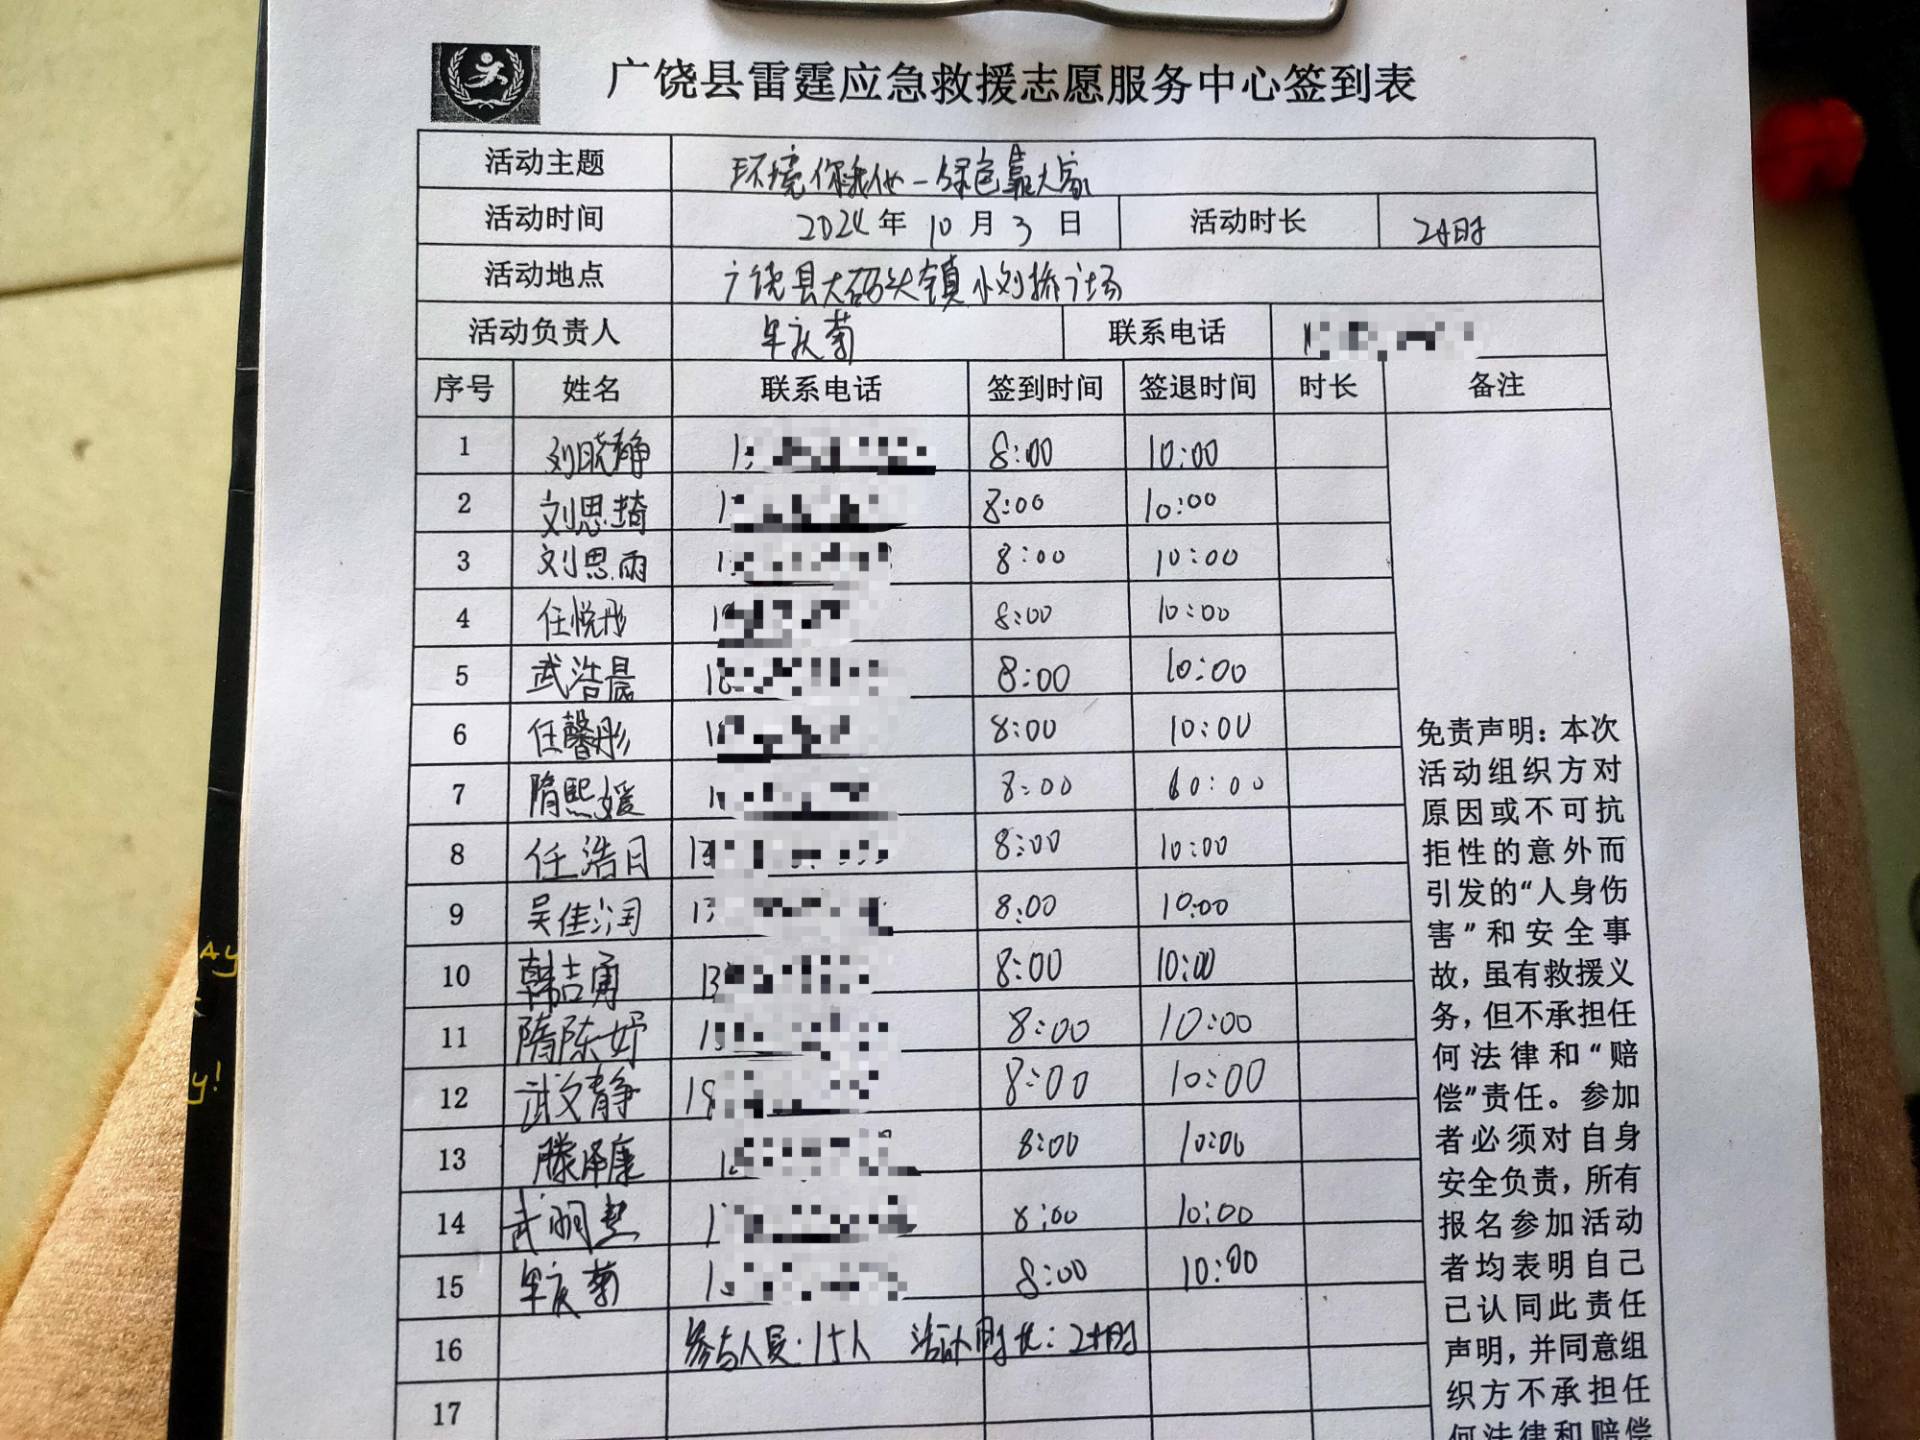 广饶县雷霆应急救援志愿服务中心签到表
活动主题 环境你我他-绿色靠大家
活动时间 2024年10月3日 活动时长 2小时
活动地点 广饶县大码头镇小刘桥广场
活动负责人 牟庆菊 联系电话
序号 姓名 联系电话 签到时间 签退时间 时长 备注
1 刘晓静 8:00 10:00
2 刘思琦 8:00 10:00
3 刘思雨 8:00 10:00
4 任悦彤 8:00 10:00
5 武浩晨 8:00 10:00
6 任馨彤 8:00 10:00
7 隋熙媛 8:00 10:00
8 任浩月 8:00 10:00
9 吴佳润 8:00 10:00
10 韩吉勇 8:00 10:00
11 隋陈妤 8:00 10:00
12 武文静 8:00 10:00
13 滕泽康 8:00 10:00
14 武明 8:00 10:00
15 牟庆菊 8:00 10:00
16 参与人员:15人 活动时长:2小时
17
免责声明：本次
活动组织方对
原因或不可抗
拒性的意外而
引发的“人身伤
害”和安全事
故，虽有救援义
务，但不承担任
何法律和“赔
偿”责任。参加
者必须对自身
安全负责，所有
报名参加活动
者均表明自己
已认同此责任
声明，并同意组
织方不承担任
何法律和赔偿